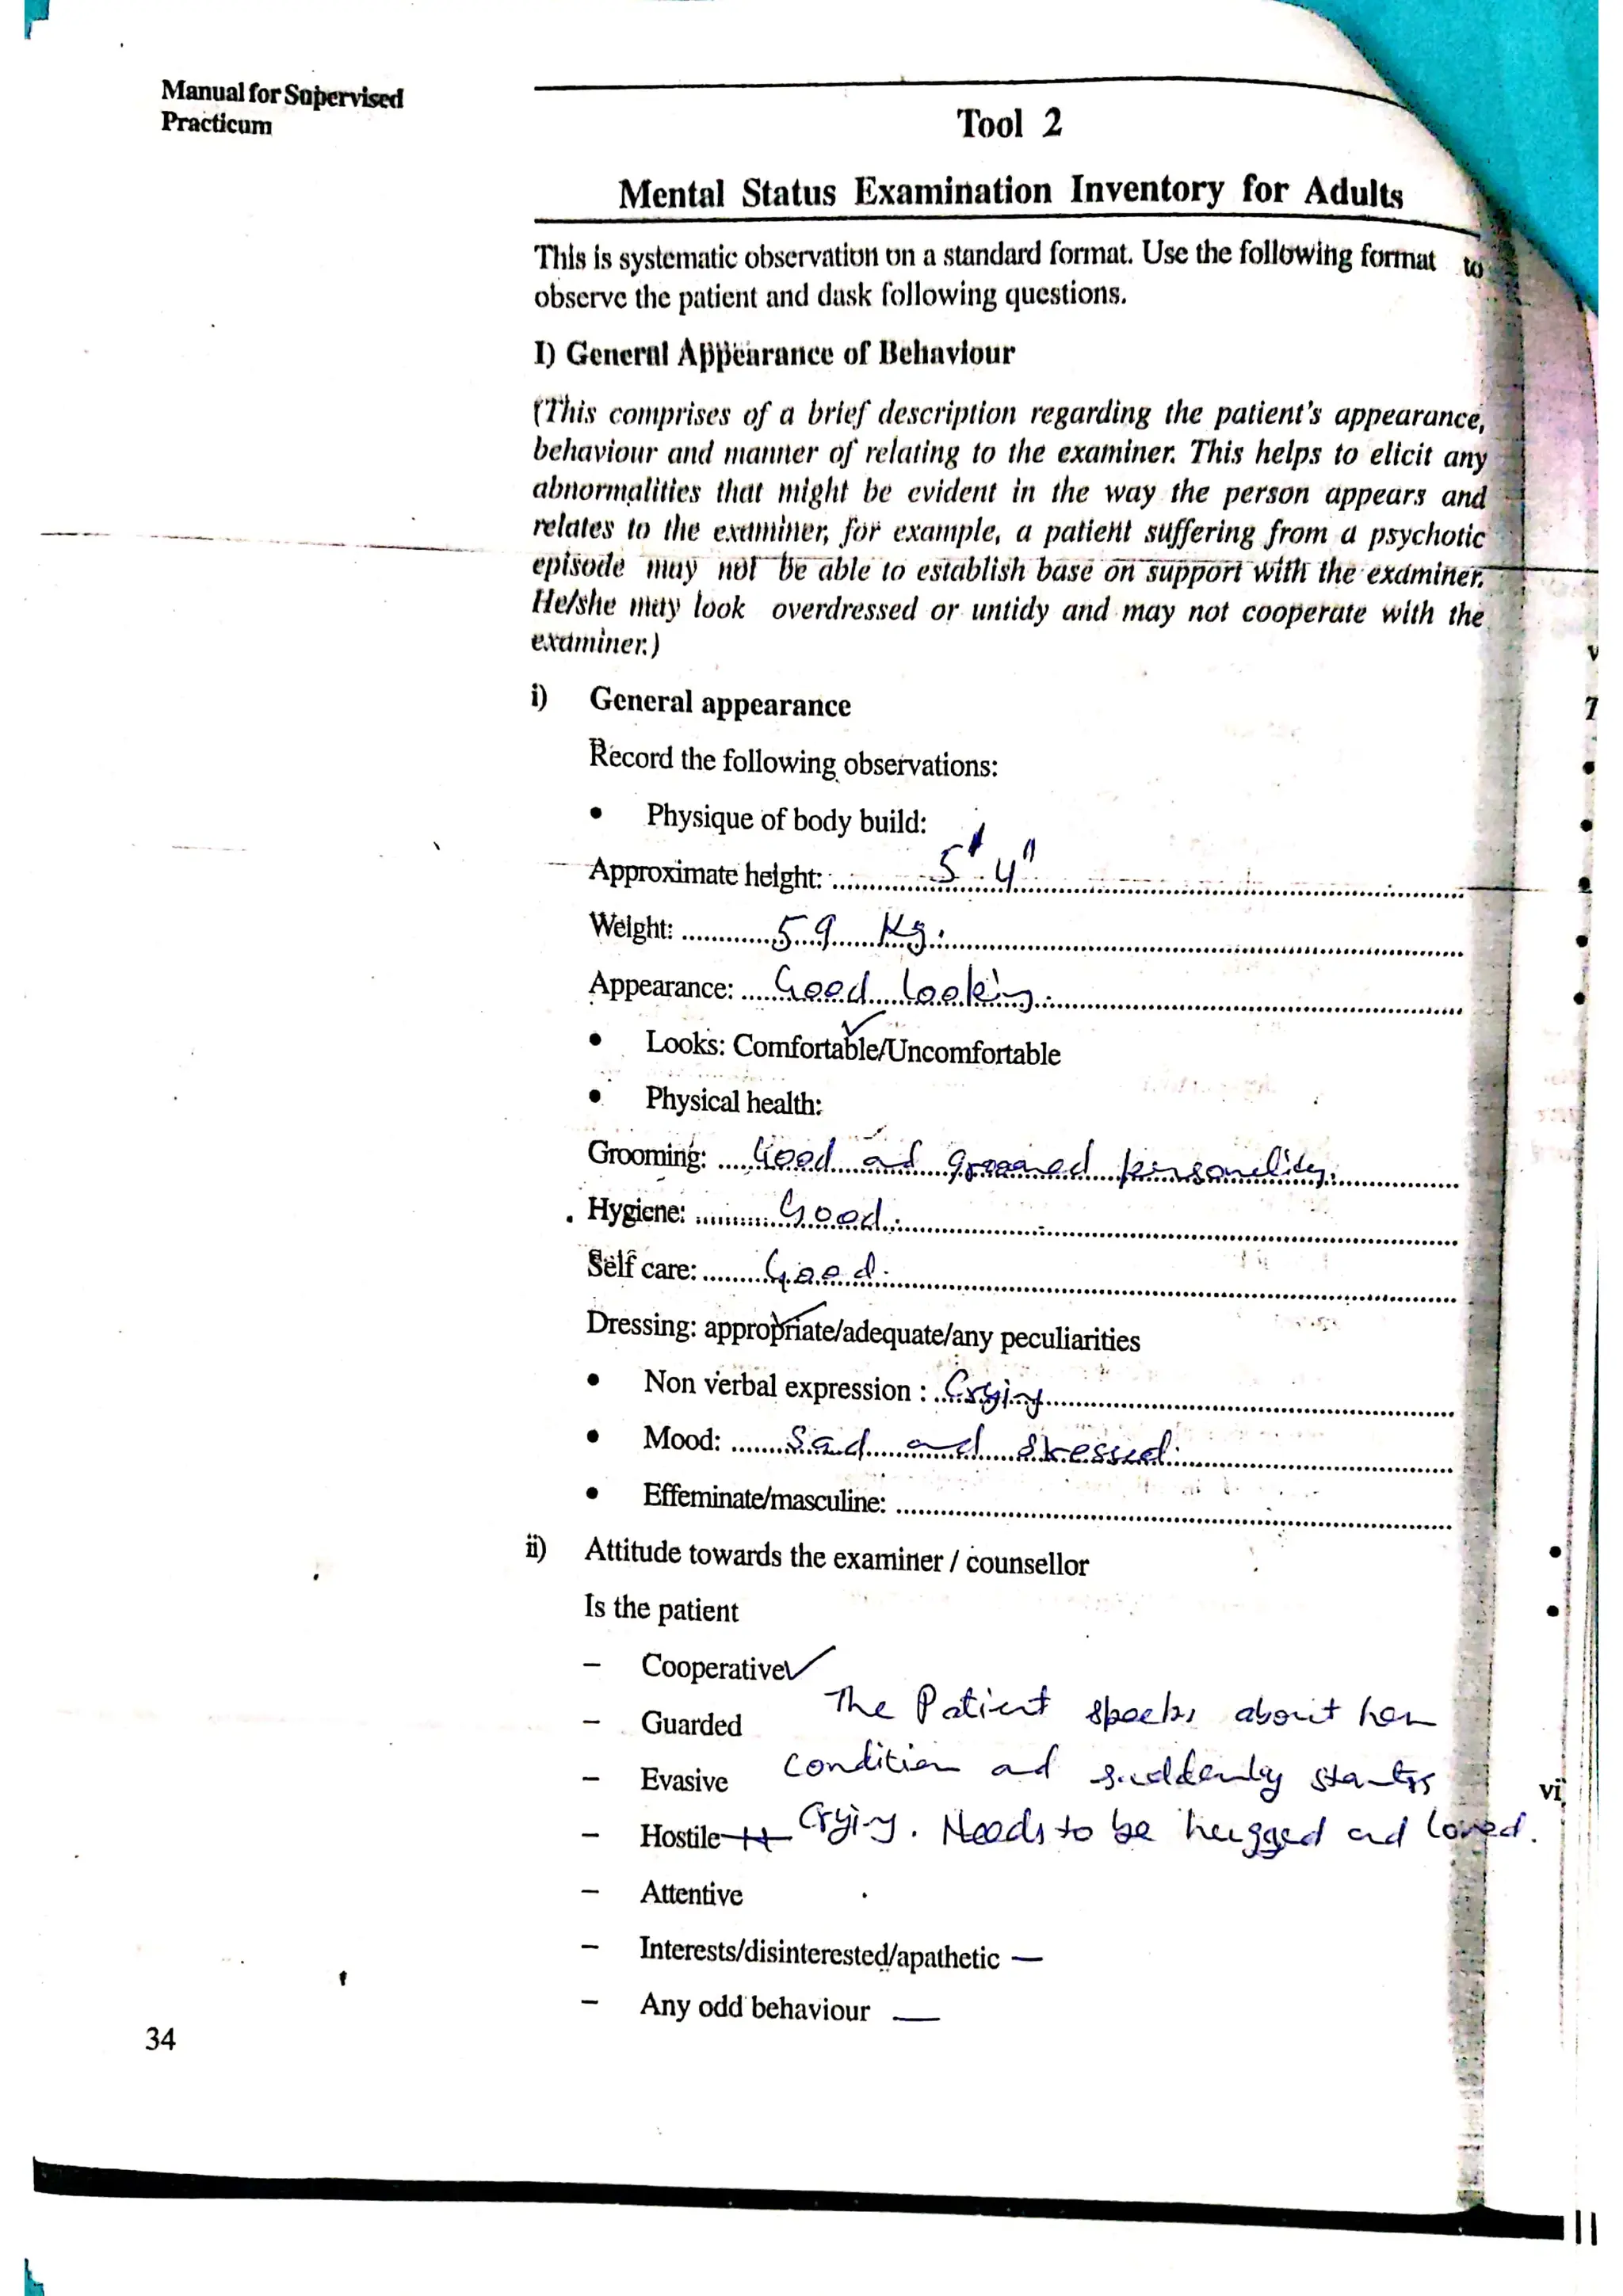 Manual for Supervised
Practicum
Tool 2
Mental Status Examination Inventory for Adults
This is systematic observation on a standard format. Use the following format to
observe the patient and dask following questions.
I) General Appearance of Behaviour
(This comprises of a brief description regarding the patient's appearance,
behaviour and manner of relating to the examiner. This helps to elicit any
abnormalities that might be evident in the way the person appears and
relates to the examiner, for example, a patient suffering from a psychotic
episode may not be able to establish base on support with the examiner.
He/she may look overdressed or untidy and may not cooperate with the
examiner.)
i) General appearance
Record the following observations:
• Physique of body build:
Approximate height: 5' 4"
Weight: 59 Kg.
Appearance: Good looking.
• Looks: Comfortable/Uncomfortable
• Physical health:
Grooming: Good and groomed personelity.
Hygiene: Good.
Self care: Good.
Dressing: appropriate/adequate/any peculiarities
• Non verbal expression : Crying
• Mood: Sad and stressed.
• Effeminate/masculine:
ii) Attitude towards the examiner / counsellor
Is the patient
– Cooperative ✓
– Guarded The Patient speaks about her
– Evasive condition and suddenly starts
– Hostile crying. Needs to be hugged and loved.
– Attentive
– Interests/disinterested/apathetic —
– Any odd behaviour —
34
vi